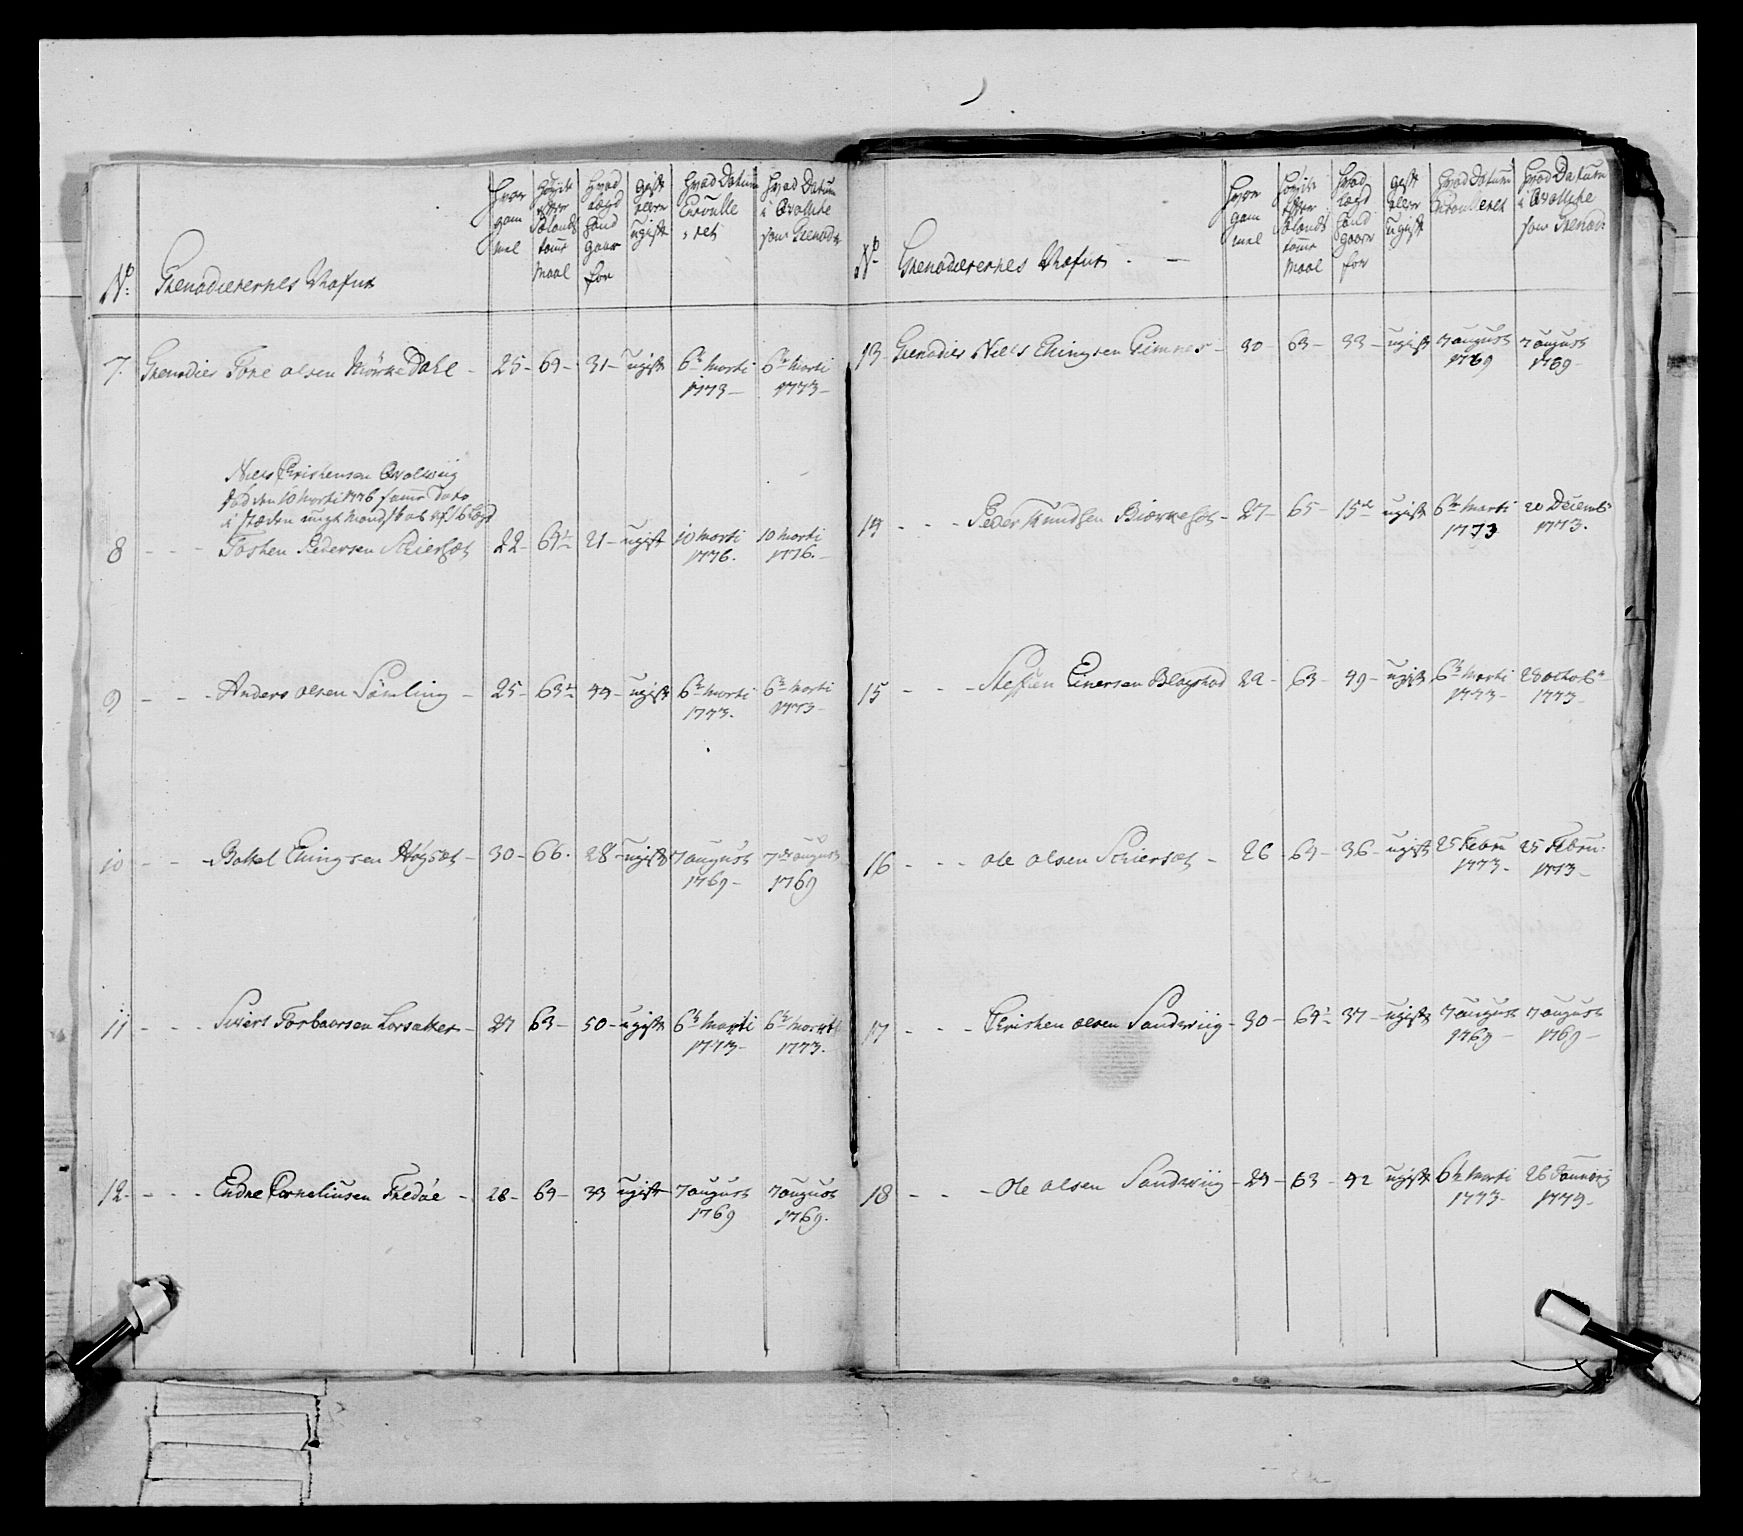 No. Grenadierernes Nafne
Hvor gam mel
Høyde efter Sælands tomr Maal
Hvad Lægd Hand gaar for
Gift eller ugift
Hvad Datum Enroulle ret
Hvad Datum i Qvalitte som Grenadr
7. Grenadier Tore olsen Mørke Dahl - 25 - 64 - 31 - ugift 6te Marti 1773 - 6te Marti 1773 -
Niels Christensen Qvalwiig
død den 10 Marti 1776 samme Dato
i stæden ungt Mandskab af 16 Lægd
8 - - - Tosten Pedersen Schiersæt 22 - 64 1/2 - 21 - ugift 10 Marti 1776. 10 Marti 1776. -
9 - - - Anders olsen Sømling - 25 - 63 1/2 - 44 - ugift 6te Marti 1773. 6te Marti 1773 -
10 - - - Botel Elling sen Høgsæt - 30 - 66. 28 - ugift 7 august 1769 - 7de august 1769
11 - - - Siwert Torbiørsen - 27 63 - 50 - ugift 6te Marti 1773 - 6te Marti 1773.
12 - - - Endre Corneliusen Fredøe - 28 - 64 - 33 ugift - 7 august 1769 7 august 1769.
No. Grenadierernes Nafne . -
Hvor gam mel
Høyde efter Sælands tomr Maal
Hvad Lægd Hand gaar for
Gift eller ugift
Hvad Datum Enroulleret
Hvad Datum i Qvalitte som Grenadr
13 Grenadier Niels Ellingsen Gimnes - 30 - 63 - 33 - ugift 7 august 1769 7 august 1769 -
14 - - - Peder Knudsen Biørkesæt - 27 - 65 - 15de ugift 6te Marti 1773 20 Decemb 1773.
15 - - - Steffen Einersen Blagstad 22 - 63 - 49 - ugift 6te Marti 1773 - 28 octobr 1773 -
16 - - - ole olsen Schiersæt - 26 64 - 36 - ugift 25 Febru 1773 - 25 Febru. 1773 -
17 - - - Christen olsen Sandwiig - 30 - 64 1/2 - 37 - ugift 7 august 1769 - 7 august 1769 -
18 - - - ole olsen Sandwiig - 24 - 63 - 42 ugift 6te Marti 1773 - 26 Januarij 1774 -